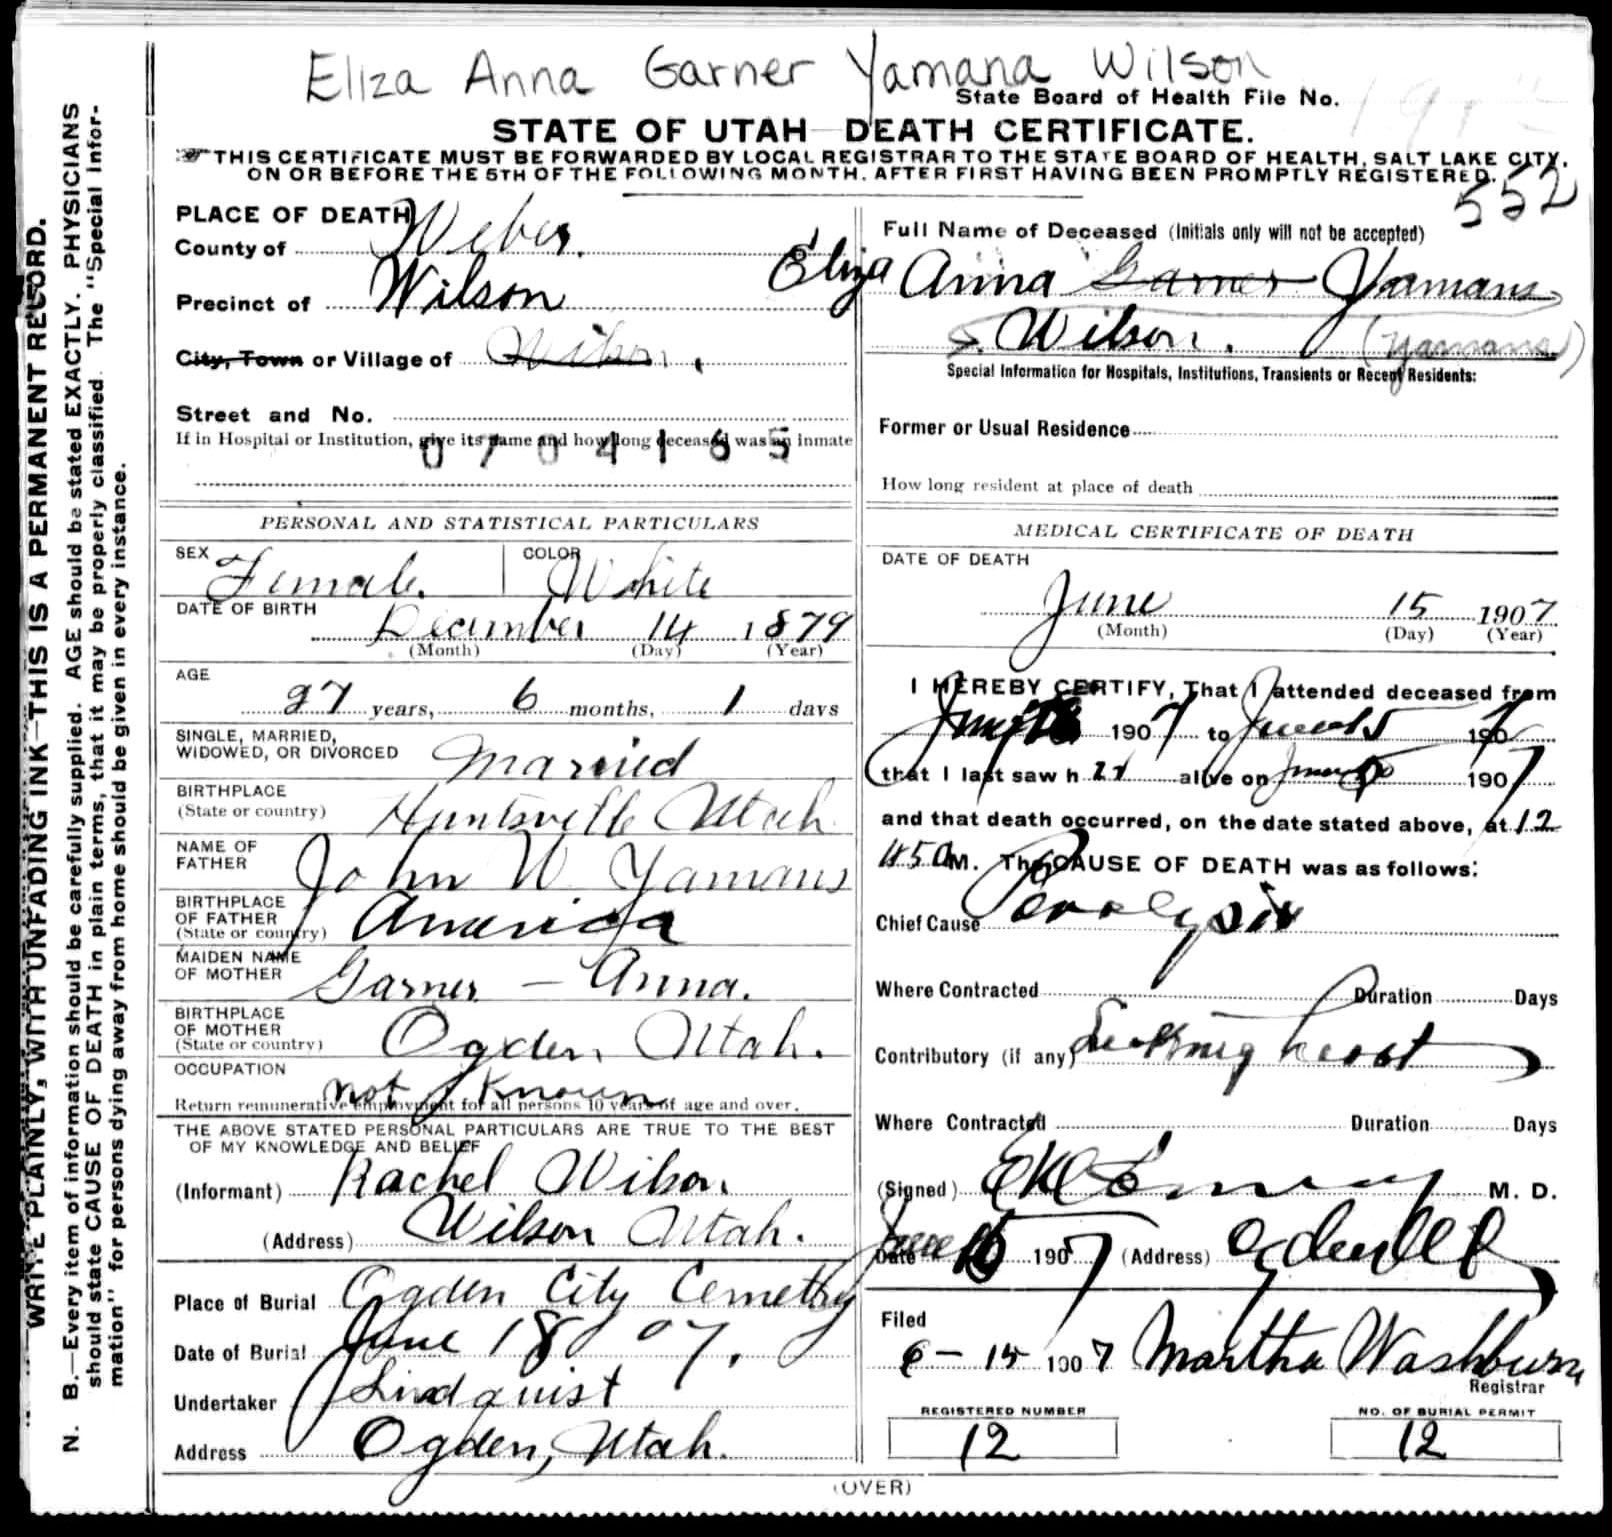 Eliza Anna Garner Yamana Wilson
State Board of Health File No.
STATE OF UTAH DEATH CERTIFICATE.
THIS CERTIFICATE MUST BE FORWARDED BY LOCAL REGISTRAR TO THE STATE BOARD OF HEALTH, SALT LAKE CITY,
ON OR BEFORE THE 5TH OF THE FOLLOWING MONTH, AFTER FIRST HAVING BEEN PROMPTLY REGISTERED.
552
WRITE PLAINLY, WITH UNFADING INK—THIS IS A PERMANENT RECORD.
N. B.—Every item of information should be carefully supplied. AGE should be stated EXACTLY. PHYSICIANS
should state CAUSE OF DEATH in plain terms, that it may be properly classified. The "Special Infor-
mation" for persons dying away from home should be given in every instance.
PLACE OF DEATH
County of Weber.
Precinct of Wilson
City, Town or Village of Wilson.
Street and No.
If in Hospital or Institution, give its name and how long deceased was an inmate
0704165
Full Name of Deceased (Initials only will not be accepted)
Eliza Anna Garner Yamans
Wilson. (Yamana)
Special Information for Hospitals, Institutions, Transients or Recent Residents:
Former or Usual Residence
How long resident at place of death
PERSONAL AND STATISTICAL PARTICULARS
SEX Female. COLOR White
DATE OF BIRTH December 14 1879
(Month) (Day) (Year)
AGE
27 years, 6 months, 1 days
SINGLE, MARRIED,
WIDOWED, OR DIVORCED Married
BIRTHPLACE
(State or country) Huntsville Utah
NAME OF
FATHER John W. Yamans
BIRTHPLACE
OF FATHER
(State or country) America
MAIDEN NAME
OF MOTHER Garner — Anna.
BIRTHPLACE
OF MOTHER
(State or country) Ogden Utah.
OCCUPATION
not known
Return remunerative employment for all persons 10 years of age and over.
THE ABOVE STATED PERSONAL PARTICULARS ARE TRUE TO THE BEST
OF MY KNOWLEDGE AND BELIEF
(Informant) Rachel Wilson
(Address) Wilson Utah.
Place of Burial Ogden City Cemetery
Date of Burial June 18 07.
Undertaker Lindquist
Address Ogden, Utah.
MEDICAL CERTIFICATE OF DEATH
DATE OF DEATH
June 15 1907
(Month) (Day) (Year)
I HEREBY CERTIFY, That I attended deceased from
1907 to June 15 1907
that I last saw h er alive on 1907
and that death occurred, on the date stated above, at 12
45 AM. The CAUSE OF DEATH was as follows:
Chief Cause Paralysis
Where Contracted Duration Days
Contributory (if any) heart
Where Contracted Duration Days
(Signed) M. D.
Date June 1907 (Address) Ogden
Filed
6-15 1907 Martha Washburn
Registrar
REGISTERED NUMBER
12
NO. OF BURIAL PERMIT
12
(OVER)